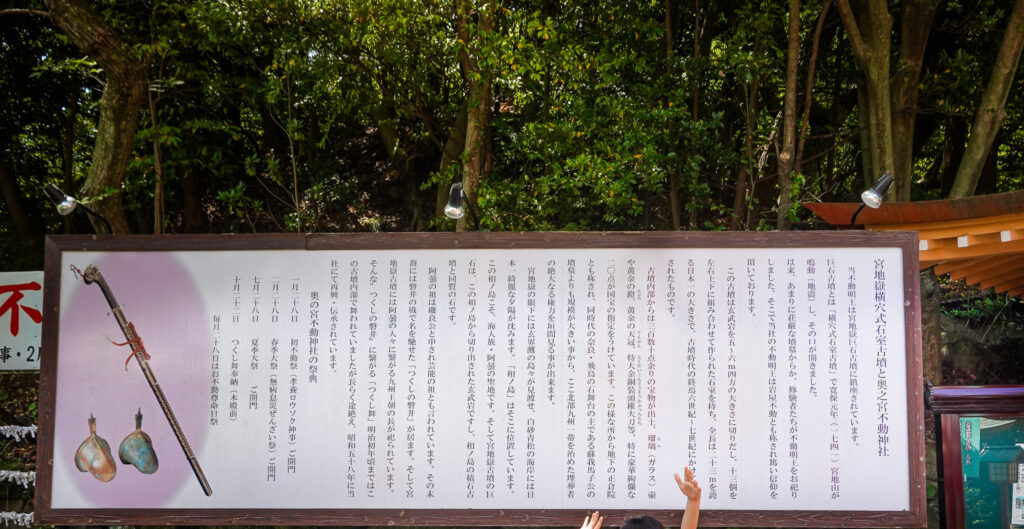 宮地嶽横穴式石室古墳と奥之宮不動神社
当不動明王は宮地嶽巨石古墳に鎮座されています。
巨石古墳とは「横穴式石室古墳」で寛保元年(一七四一)宮地山が
鳴動(地震)し、その口が開きました。
以来、あまりに荘厳な墳墓からか、修験者たちが不動明王をお祀り
しました。そこで当社の不動明王は岩屋不動とも称され篤い信仰を
頂いております。
この古墳は玄武岩を五~六m四方の大きさに切りだし、十三個を
左右上下に組み合わせて作られた石室を持ち、全長は二十三mを誇
る日本一の大きさで、古墳時代の終焉六世紀~七世紀にか
されたものです。
古墳内部からは三百数十点余りの宝物が出土、瑠璃(ガラス)壺
や黄金の鐙、黄金の天冠、特大金銅装頭椎大刀等、特に豪華絢爛な
二〇点が国宝の指定をうけています。この様な所から地下の正倉院
とも称され、同時代の奈良・飛鳥の石舞台の主である蘇我馬子公の
墳墓よりも規模が大きい事から、ここ北部九州一帯を治めた埋葬者
の絶大なる権力を垣間見る事が出来ます。
宮地嶽の眼下には玄界灘の島々が見渡せ、白砂青松の海岸には日
本一綺麗な夕陽が沈みます。「相ノ島」はそこに位置しています。
この相ノ島こそ、海人族・阿曇の聖地です。そして宮地嶽古墳の巨
石は、この相ノ島から切り出された玄武岩ですし、相ノ島の積石古
墳と同質の石です。
阿曇の祖は磯良公と申され芸能の祖とも云われています。その末
裔には磐井の戦で名を馳せた「つくしの磐井」が居ます。そして宮
地嶽古墳には阿曇の人々に繋がる九州王朝の長が祀られています。
そんな「つくしの磐井」に繋がる「つくし舞」明治初年頃まではこ
の古墳内部で舞われていましたが長らく途絶え、昭和五十八年に当
社にて再興・伝承されています。
奥の宮不動神社の祭典
一月二十八日 初不動祭(孝養ロウソク神事)ご開門
二月二十八日 春季大祭(無病息災ぜんざい祭)ご開門
七月二十八日 夏季大祭 ご開門
十月二十二日 つくし舞奉納(本殿前)
毎月二十八日はお不動尊命日祭
不
事・2